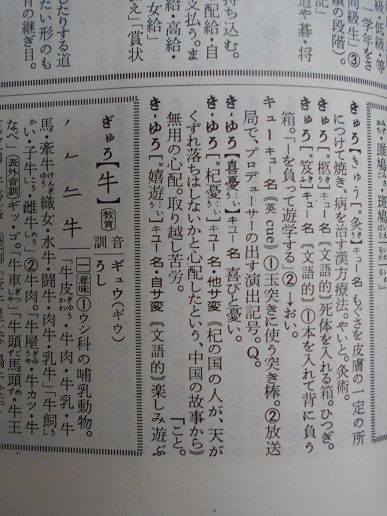 たりする道
たい形のも
有の継ぎ目。
ち込む。
配給・自
払う。ま
給・高給・
女給」
え」「賞状
級・低級・等
同級生」③
「学年をさ
績の段階。
記」
道や碁・将
きゅう【きゅう(灸)】キュー 名 もぐさを皮膚の一定の所
につけて焼き、病を治す漢方療法。やいと。灸術。
きゅう【柩】キュー 名《文語的》死体を入れる箱。ひつぎ。
きゅう【笈】キュー 名《文語的》①本を入れて背に負う
箱。「―を負って遊学する」②→おい。
キュー キュー 名《英 cue》①玉突きに使う突き棒。②放送
局で、プロデューサーの出す演出記号。Q。
き-ゆう【喜憂】キユー 名 喜びと憂い。
き-ゆう【杞憂】キユー 名・他サ変《杞の国の人が、天が
くずれ落ちはしないかと心配したという、中国の故事から》
無用の心配。取り越し苦労。
き-ゆう【嬉遊】キユー 名・自サ変《文語的》楽しみ遊ぶ
「こと。
ぎゅう【牛】教育 音 ギュウ(ギウ)
訓 うし
丿 𠂉 二 牛
一意味 ①ウシ科の哺乳動物。
「牛皮・牛肉・牛乳・牛
馬・牽牛・織女・水牛・闘牛・肉牛・乳牛」「牛飼
い・子牛・雌牛」②牛肉。「牛屋・牛カツ・牛
なべ」表外音訓 ギッ・ゴ。「牛車・牛頭馬頭・牛王